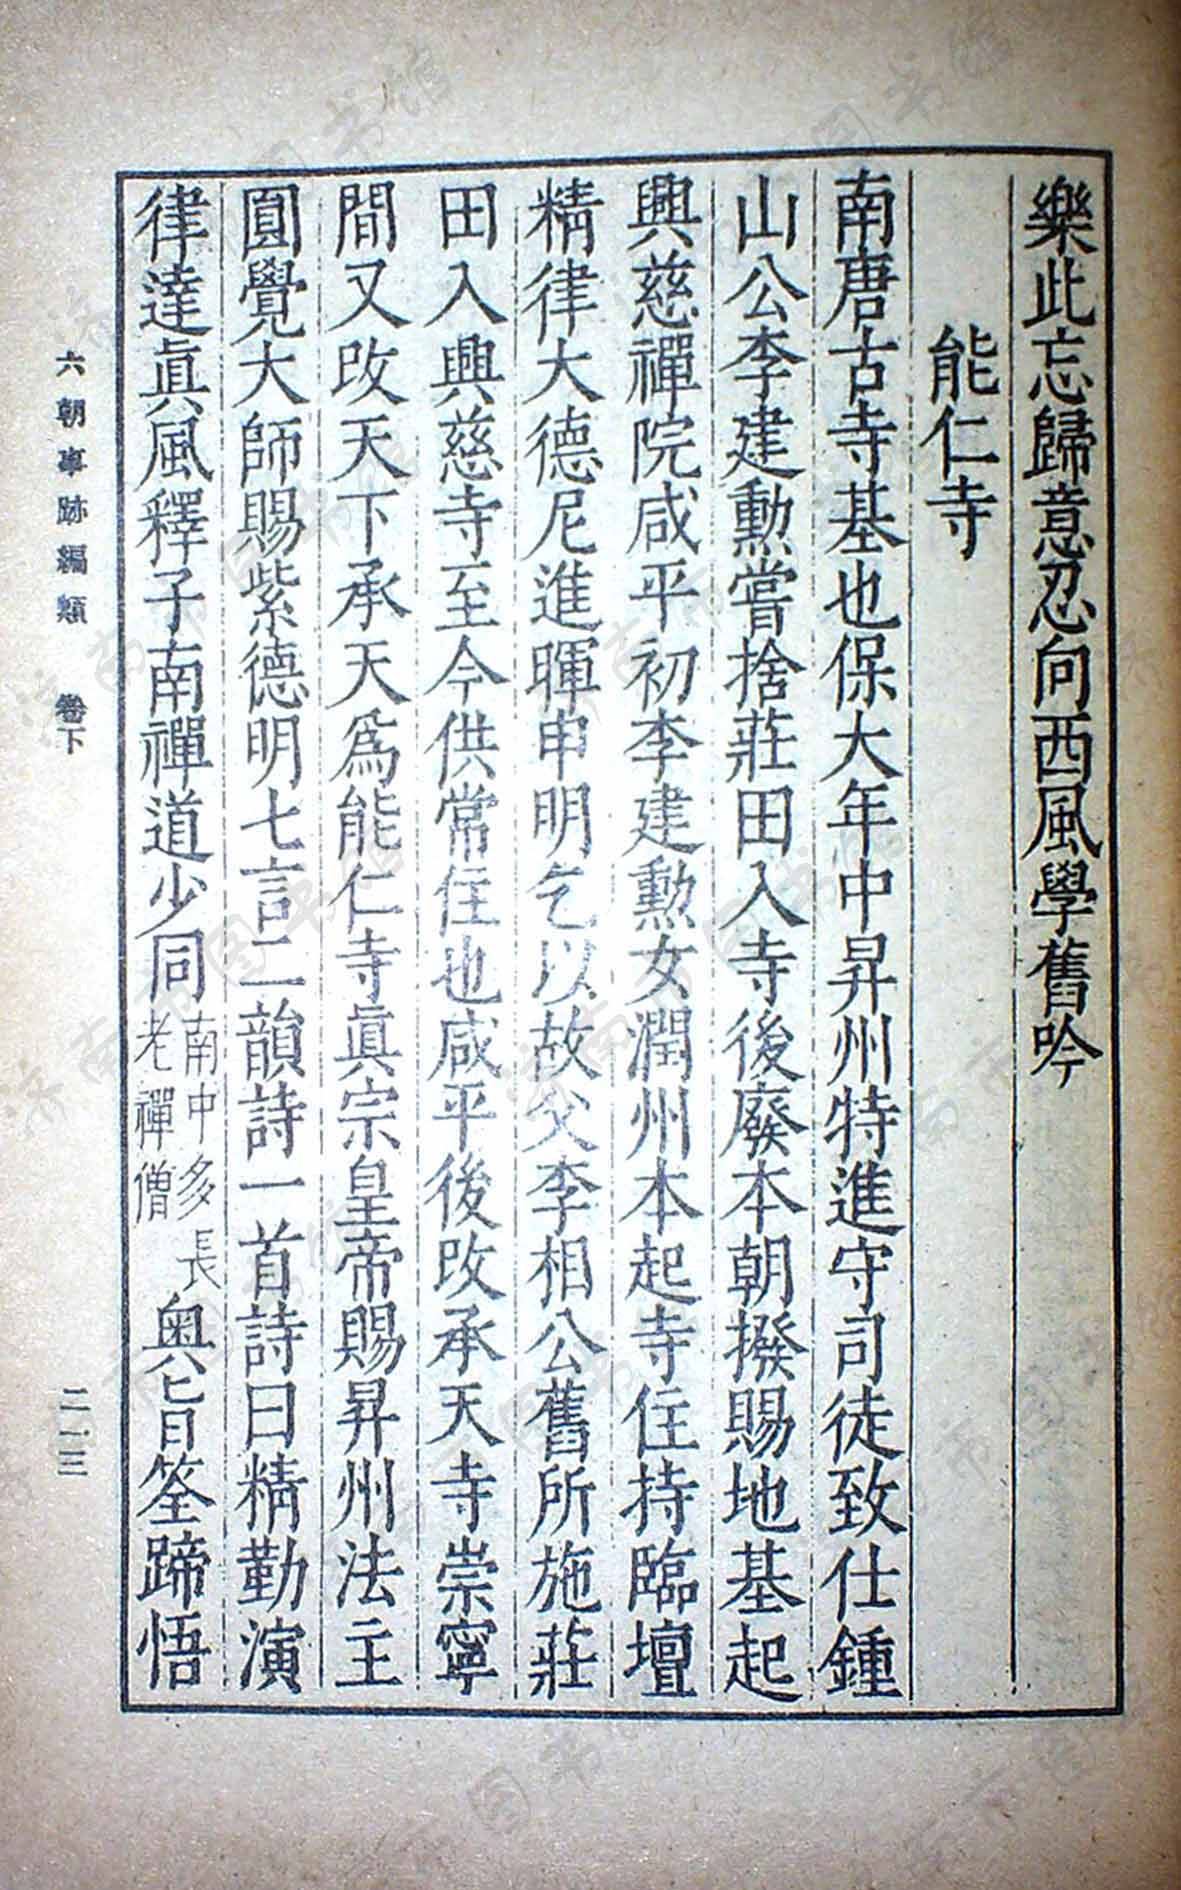 樂此忘歸意忍向西風學舊吟
能仁寺
南唐古寺基也保大年中昇州特進守司徒致仕鍾
山公李建勲嘗捨莊田入寺後廢本朝撥賜地基起
興慈禪院咸平初李建勲女潤州本起寺住持臨壇
精律大德尼進暉申明乞以故父李相公舊所施莊
田入興慈寺至今供常住也咸平後改承天寺崇寧
間又改天下承天爲能仁寺眞宗皇帝賜昇州法主
圓覺大師賜紫德明七言二韻詩一首詩曰精勤演
律達眞風釋子南禪道少同南中多長老禪僧奥旨筌蹄悟
六朝事跡編類 卷下
二一三
济南市图书馆